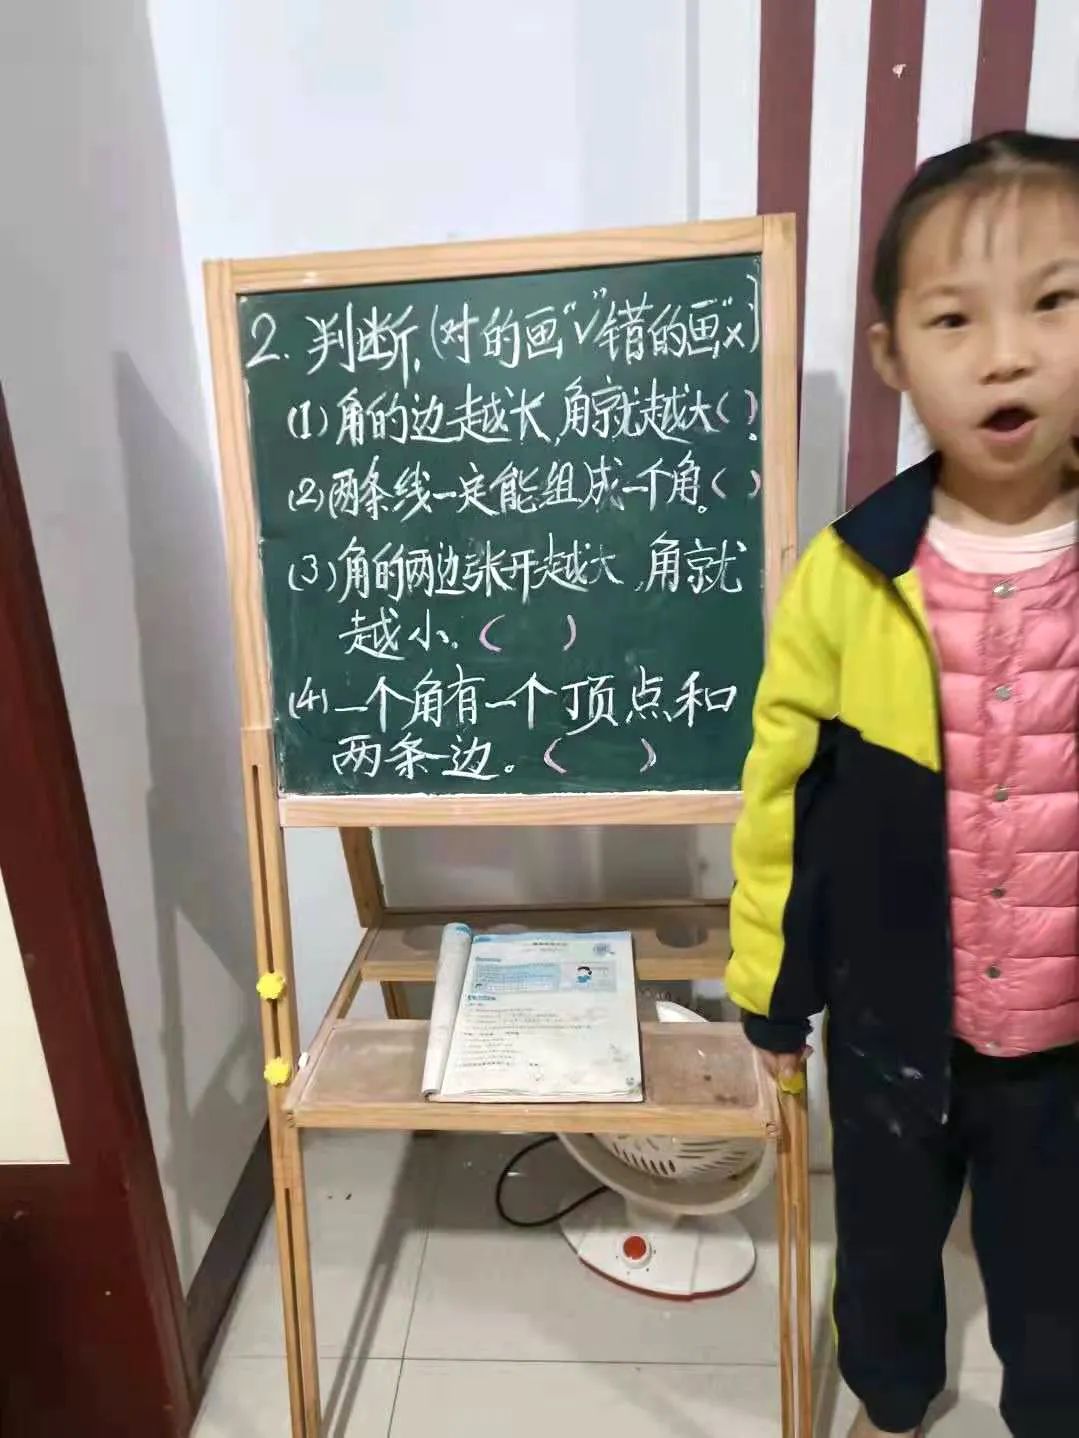 2. 判断,(对的画“√”错的画“×)
(1)角的边越长,角就越大( ).
(2)两条线一定能组成一个角。( )
(3)角的两边张开越大,角就
越小。( )
(4)一个角有一个顶点和
两条边。( )